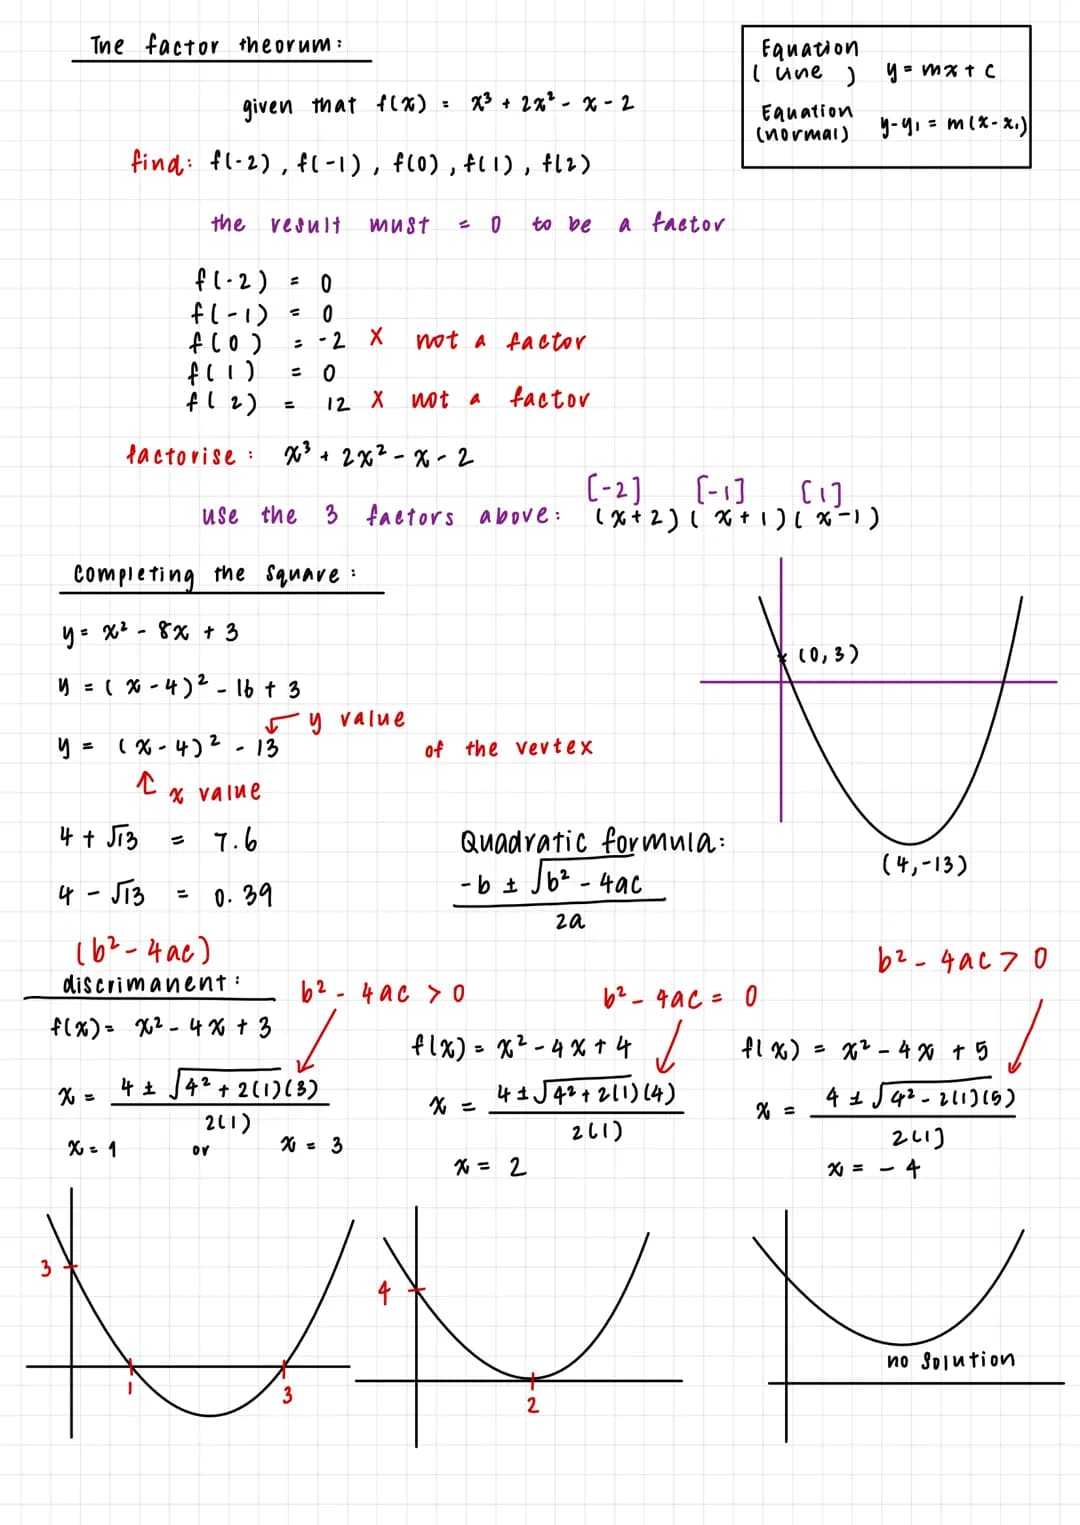 The factor theorum:
Equation
(line) y = mx + c
Equation
(normal) y-y₁ = m(x-x₁)
given that f(x) = x³ + 2x² - x - 2
find: f(-2), f(-1), f(0), f(1), f(2)
the result must = 0 to be a factor
f(-2) = 0
f(-1) = 0
f(0) = -2 X not a factor
f(1) = 0
f(2) = 12 X not a factor
factorise: x³ + 2x² - x - 2
[-2] [-1] [1]
use the 3 factors above: (x+2)(x+1)(x-1)
Completing the square:
y = x² - 8x + 3
(0,3)
y = (x-4)² - 16 + 3
y value
y = (x-4)² - 13
of the vertex
x value
4 + √13 = 7.6
Quadratic formula:
(4,-13)
4 - √13 = 0.39
-b ± √b² - 4ac
2a
(b² - 4ac)
discrimanent:
b² - 4ac > 0
f(x) = x² - 4x + 3
x = 4 ± √4² + 2(1)(3)
2(1)
x = 1 or x = 3
3
1
3
b² - 4ac = 0
f(x) = x² - 4x + 4
x = 4 ± √4² + 2(1)(4)
2(1)
x = 2
4
2
b² - 4ac > 0
f(x) = x² - 4x + 5
x = 4 ± √4² - 2(1)(5)
2(1)
x = - 4
no solution